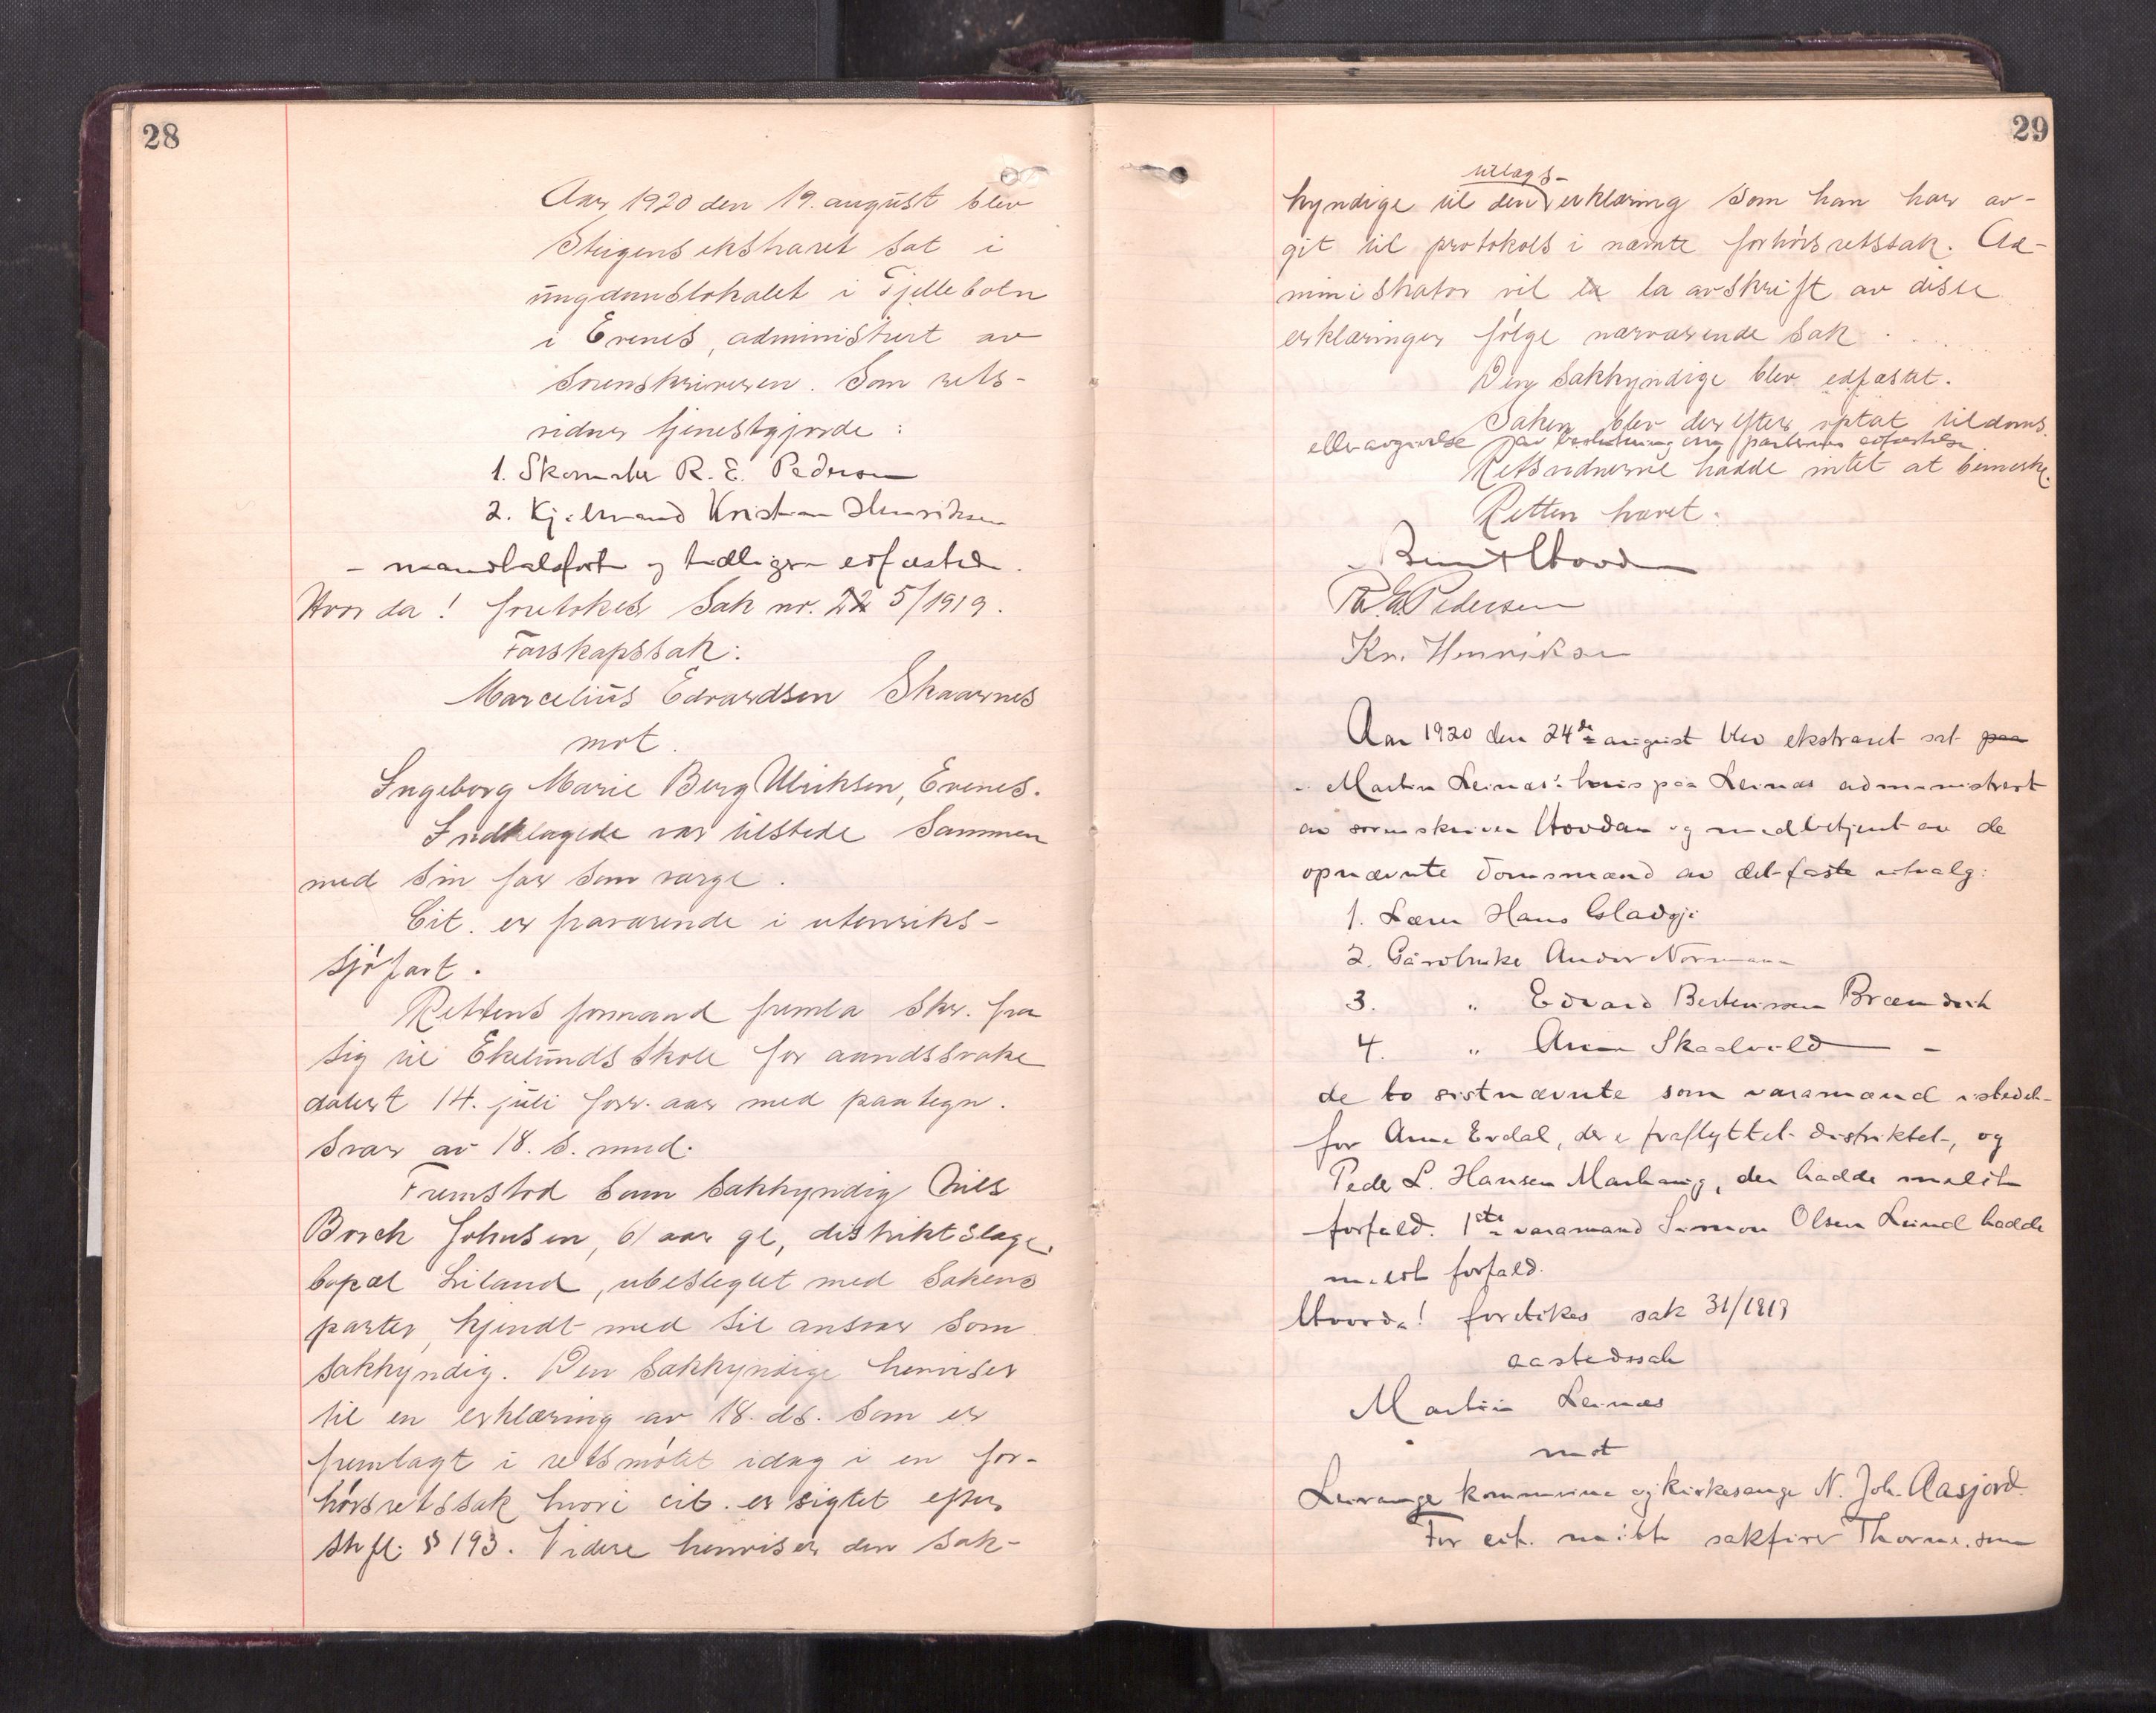 28
Aar 1920 den 19. august blev
Steigens ekstraret sat i
ungdomslokalet i Fjellebotn
i Evenes, administrert av
sorenskriveren. Som rets-
vidner tjenestgjorde:
1. Skomaker R. E. Pedersen
2. Kjøbmand Kristian Henriksen
- mandtalsført og tidligere edfæsted.
Hvorda! foretokes Sak nr. 5/1919.
Farskapssak:
Marcelius Edvardsen Skaarnes
mot.
Ingeborg Marie Berg Ulriksen, Evenes.
Indklagede var tilstede sammen
med sin far som værge.
Cit. er fraværende i utenriks-
sjøfart.
Rettens formand fremla skr. fra
sig til Ekelunds skole for aandssvake
datert 14. juli forr. aar med paategn.
svar av 18. s. mnd.
Fremstod som sakkyndig Nils
Borch Johnsen, 61 aar gl, distriktslæge,
bopæl Liland, ubeslegtet med sakens
parter, kjendt med sit ansvar som
sakkyndig. Den sakkyndige henviser
til en erklæring av 18. ds. som er
fremlagt i retsmøtet idag i en for-
hørsretssak hvori cit. er sigtet efter
strfl. § 193. Videre henviser den sak-
29
utlægs-
kyndige til den erklæring som han har av-
git til protokols i nævnte forhørsretssak. Ad-
ministrator vil la avskrift av disse
erklæringer følge nærværende sak.
Den sakkyndige blev edfæstet.
Saken blev derefter optat til doms
eller avgivelse av beslutning om partenes edfæstelse
Retsvidnerne hadde intet at bemerke.
Retten hævet.
R. E. Pedersen
Kr. Henriksen
Aar 1920 den 24de august blev ekstraret sat paa
i Martin Leinæs' hus paa Leinæs administrert
av sorenskriver Hovdan og medbetjent av de
opnævnte domsmænd av det faste utvalg:
1. Lærer Hans Gladsjø
2. Gårdbruker Andor Normann
3. " Edvard Berteussen
4. " Skaalvold -
de to sistnævnte som varamænd istedet-
for Arne Evdal, der er fraflyttet distriktet, og
Peder L. Hansen Markaug, der hadde meldt
forfald. 1ste varamand Simon Olsen Leind hadde
meldt forfald.
Hvorda! foretokes sak 31/1919
aastedssak
Martin Leinæs
mot
Leiranger kommune og kirkesanger N. Joh. Aasjord.
For cit. møtte sakfører Thorne, som